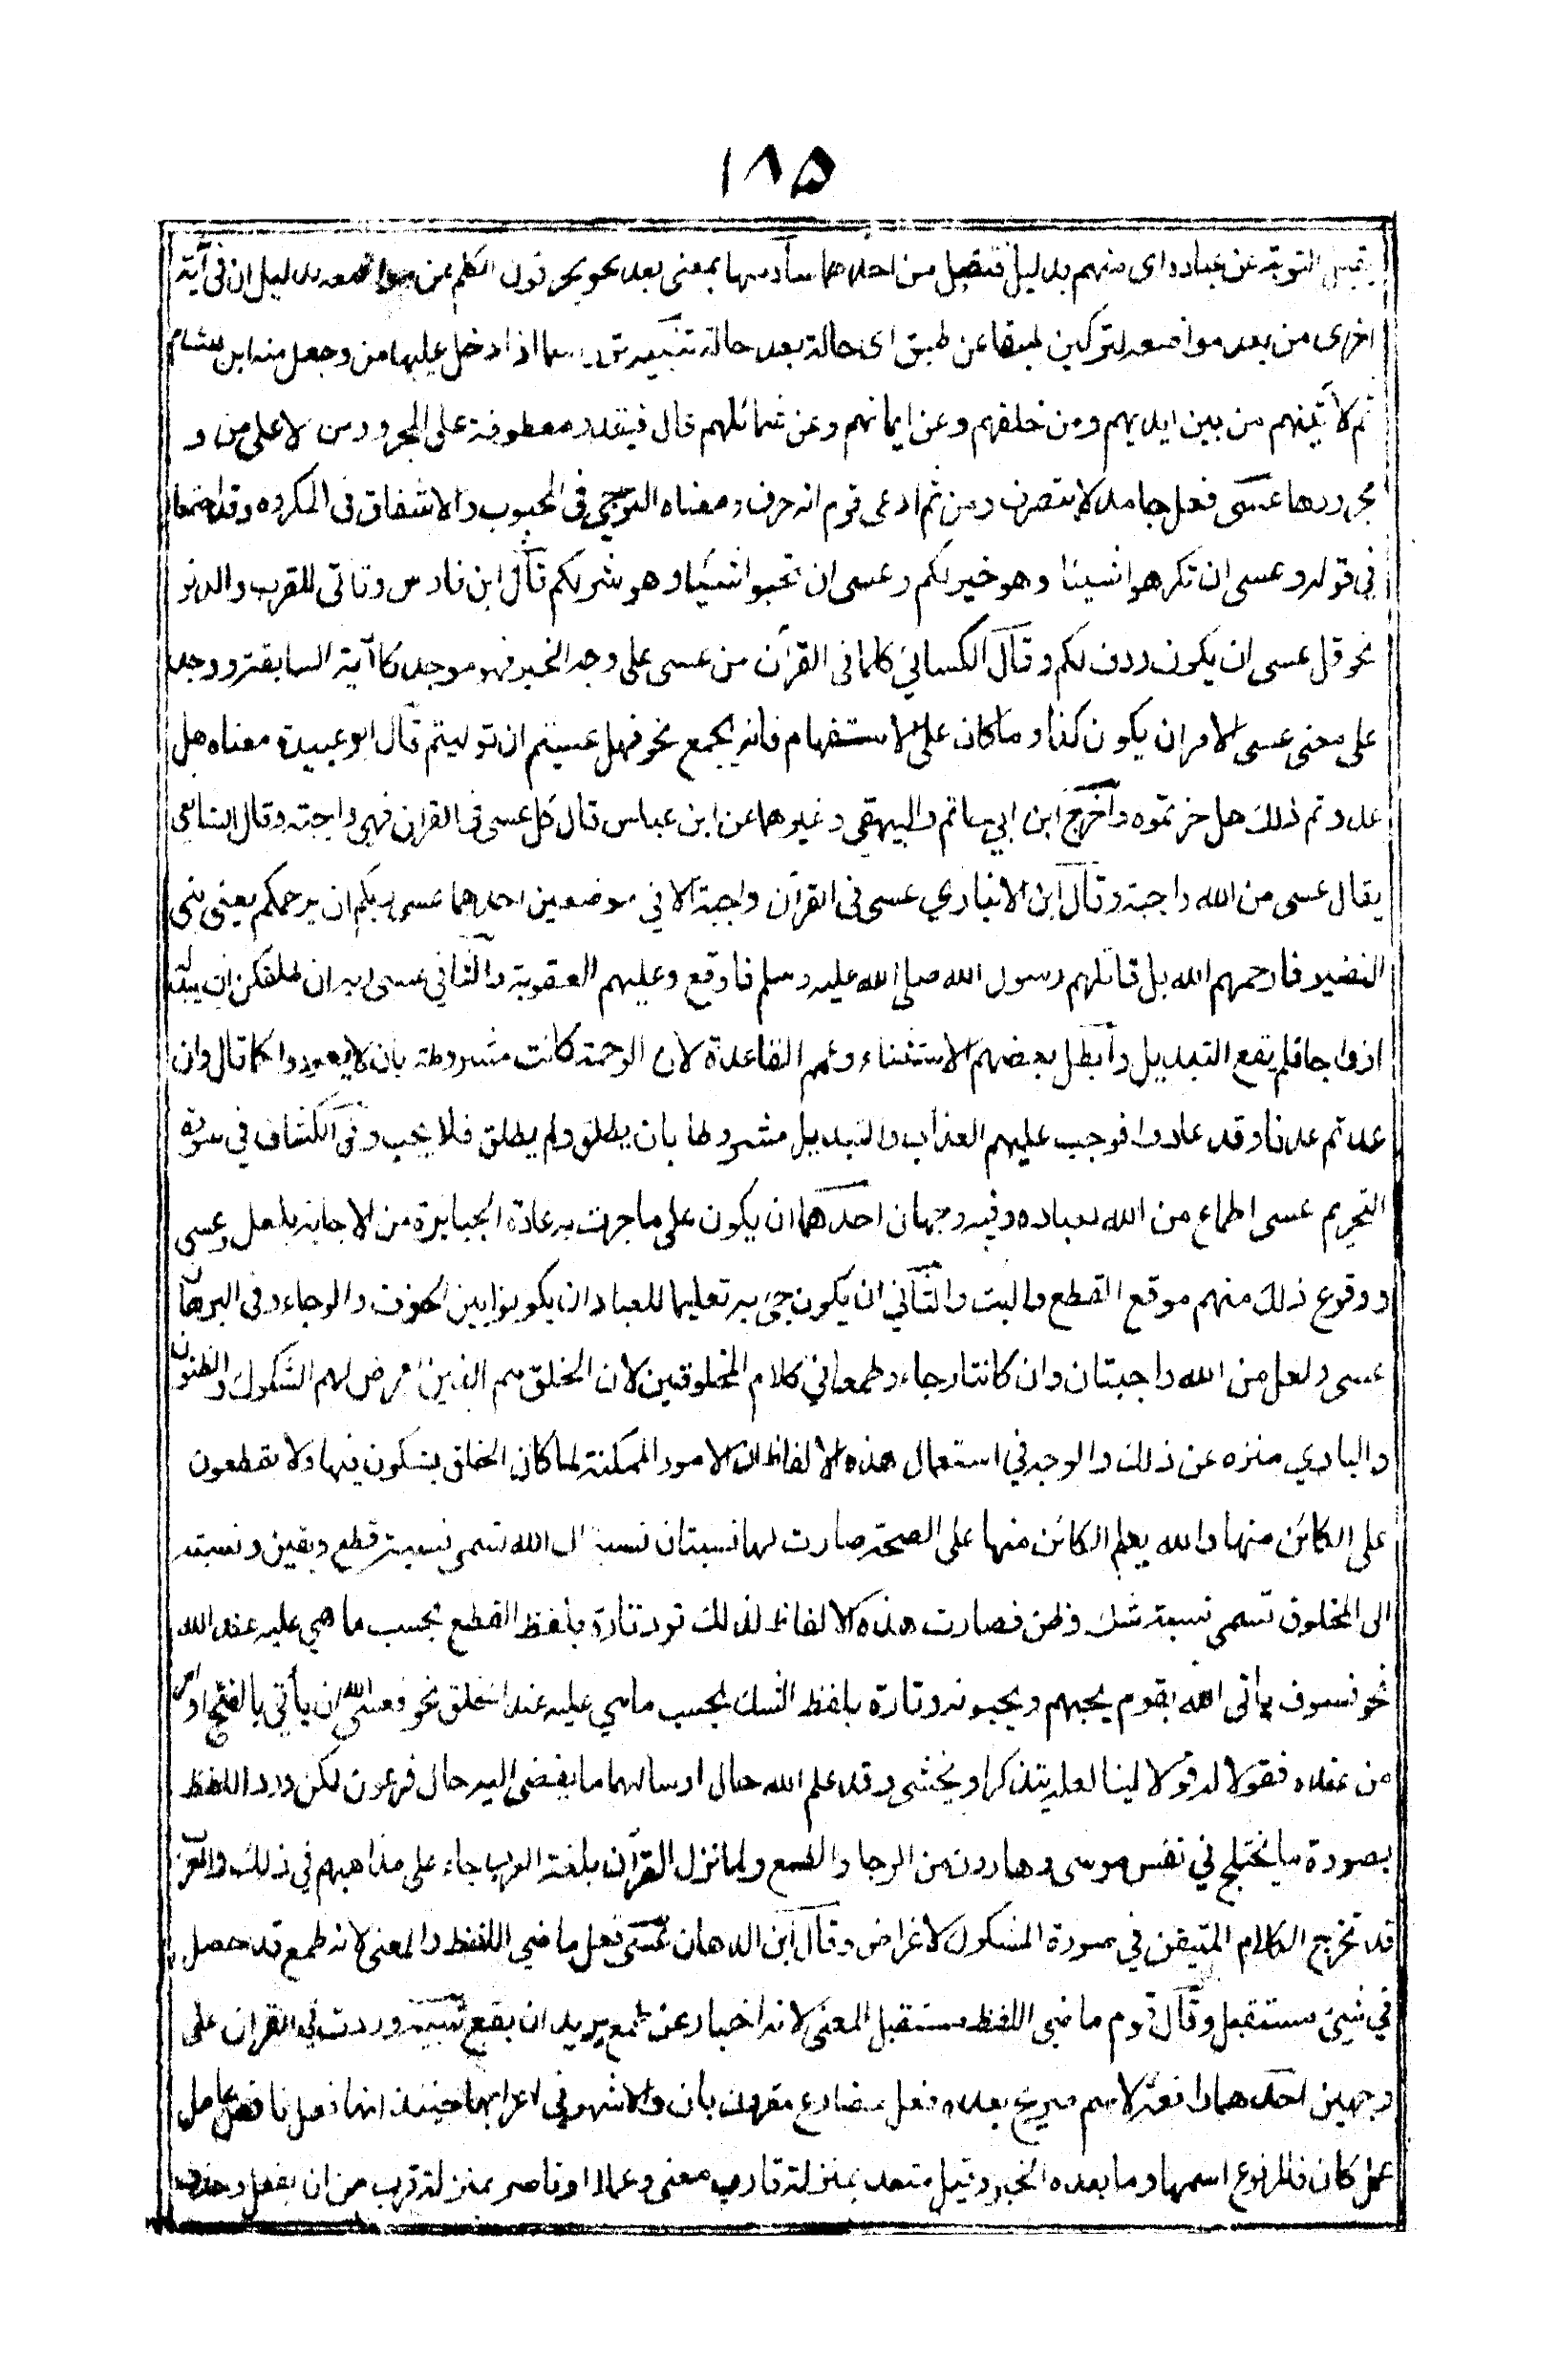 ١٨٥
يقبل التوبة عن عباده اى منهم بدليل فتقبل من احدهما سادسها بمعنى بعد نحو يحرفون الكلم عن مواضعه بدليل ان فى آية
اخرى من بعد مواضعه لتركبن طبقا عن طبق اى حالة بعد حالة تنبيه ترد اسما اذا دخل عليها من وجعل منه ابن هشام
ثم لآتينهم من بين ايديهم ومن خلفهم وعن ايمانهم وعن شمائلهم قال فيقدر معطوفة على المجرور من لا على من و
مجرورها عسى فعل جامد لا يتصرف ومن ثم ادعى قوم انه حرف ومعناه الترجي فى المحبوب والاشفاق فى المكروه وقد اجتمعا
في قوله وعسى ان تكرهوا شيئا وهو خير لكم وعسى ان تحبوا شيئا وهو شر لكم قال ابن فارس وتاتى للقرب والدنو
نحو قل عسى ان يكون ردف لكم وقال الكسائي كلما فى القرآن من عسى على وجه الخبر فهو موحد كالآية السابقة ووجه
على معنى عسى الامر ان يكون كذا وما كان على الاستفهام فانه يجمع نحو فهل عسيتم ان توليتم قال ابو عبيدة معناه هل
عدوتم ذلك هل جزتموه واخرج ابن ابي حاتم والبيهقي وغيرهما عن ابن عباس قال كل عسى فى القران فهي واجبة وقال الشافعى
يقال عسى من الله واجبة وقال ابن الانباري عسى فى القرآن واجبة الا في موضعين احدهما عسى ربكم ان يرحمكم يعنى بنى
النضير فما رحمهم الله بل قاتلهم رسول الله صلى الله عليه وسلم فاوقع وعليهم العقوبة والثاني عسى ربه ان طلقكن ان يبدله
ازواجا فلم يقع التبديل وابطل بعضهم الاستثناء وعمم القاعدة لان الرحمة كانت مشروطة بان لا يعودوا كما قال وان
عدتم عدنا وقد عادوا فوجب عليهم العذاب والتبديل مشروطا بان يطلق ولم يطلق فلا يجب وفى الكشاف في سورة
التحريم عسى اطماع من الله لعباده وفيه وجهان احدهما ان يكون على ما جرت به عادة الجبابرة من الاجابة بلعل وعسى
ووقوع ذلك منهم موقع القطع والبت والثاني ان يكون جئ به تعليما للعباد ان يكونوا بين الخوف والرجاء وفى البرهان
عسى ولعل من الله واجبتان وان كانتا رجاء وطمعا في كلام المخلوقين لان الخلق هم الذين يعرض لهم الشكوك والظنون
والباري منزه عن ذلك والوجه في استعمال هذه الالفاظ ان الامور الممكنة لما كان الخلق يشكون فيها ولا يقطعون
على الكائن منها والله يعلم الكائن منها على الصحة صارت لها نسبتان نسبة الى الله تسمى نسبة قطع ويقين ونسبة
الى المخلوق تسمى نسبة شك وظن فصارت هذه الالفاظ لذلك ترد تارة بلفظ القطع بحسب ما هي عليه عند الله
نحو فسوف ياتى الله بقوم يحبهم ويحبونه وتارة بلفظ الشك بحسب ما هي عليه عند الخلق نحو فعسى الله ان يأتي بالفتح او امر
من عنده فقولا له قولا لينا لعله يتذكر او يخشى وقد علم الله حال ارسالهما ما يفضى اليه حال فرعون لكن ورد اللفظ
بصورة ما يختلج في نفس موسى وهارون من الرجا والطمع ولما نزل القرآن بلغة العرب جاء على مذاهبهم في ذلك والعرب
قد تخرج الكلام المتيقن في صورة المشكوك لاغراض وقال ابن الدهان عسى فعل ماضي اللفظ والمعنى لانه طمع قد حصل
في شيئ مستقبل وقال قوم ماضي اللفظ مستقبل المعنى لانه اخبار عن طمع يريد ان يقع تنبيه وردت في القران على
وجهين احدهما رافعة لاسم صريح بعده فعل مضارع مقرون بان والاشهر في اعرابها حينئذ انها فعل ناقص عامل
عمل كان فالمرفوع اسمها وما بعده الخبر وقيل متعد بمنزلة قارب معنى وعملا او قاصر بمنزلة قرب من ان يفعل وحذف